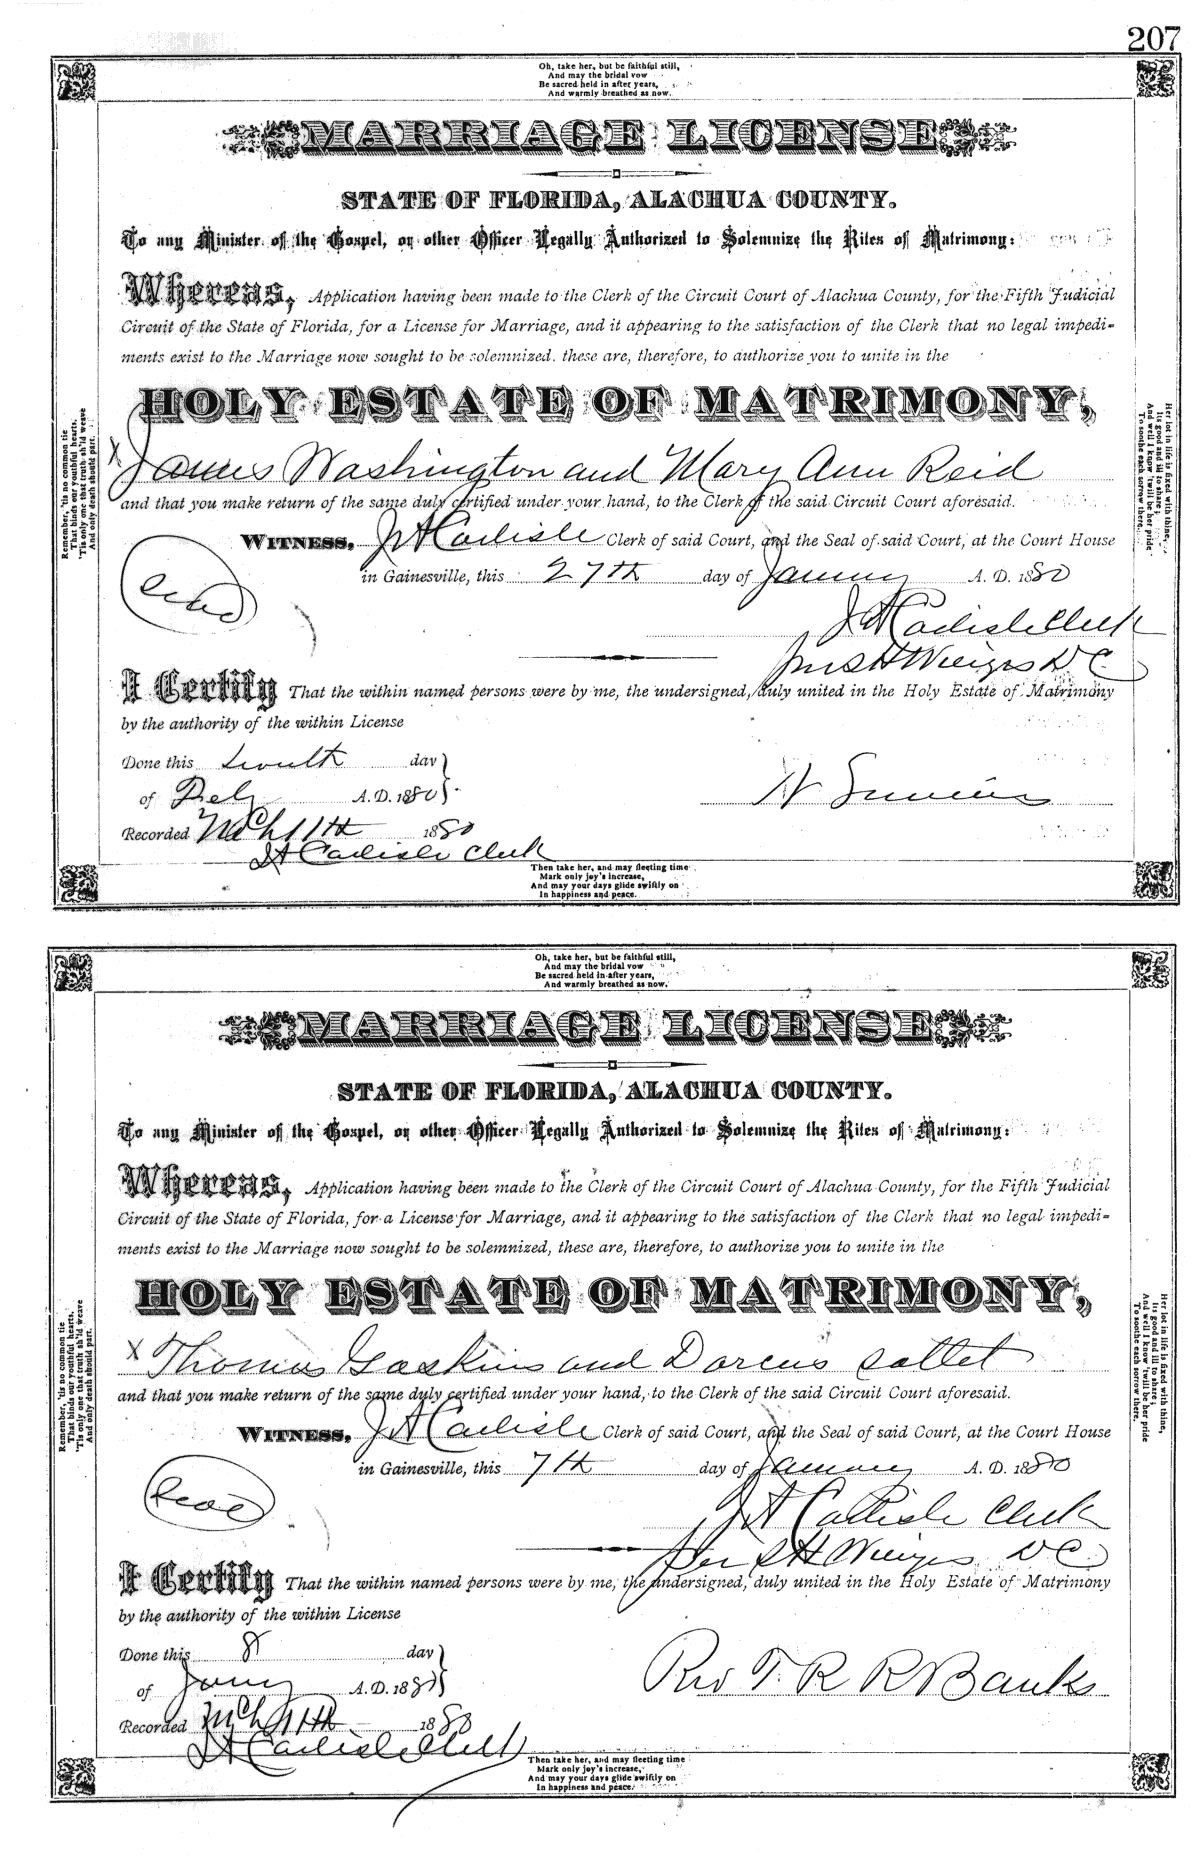 207
Oh, take her, but be faithful still,
And may the bridal vow
Be sacred held in after years,
And warmly breathed as now.
MARRIAGE LICENSE
STATE OF FLORIDA, ALACHUA COUNTY.
To any Minister of the Gospel, or other Officer Legally Authorized to Solemnize the Rites of Matrimony:
Whereas, Application having been made to the Clerk of the Circuit Court of Alachua County, for the Fifth Judicial
Circuit of the State of Florida, for a License for Marriage, and it appearing to the satisfaction of the Clerk that no legal impedi-
ments exist to the Marriage now sought to be solemnized, these are, therefore, to authorize you to unite in the
HOLY ESTATE OF MATRIMONY,
X James Washington and Mary Ann Reid
and that you make return of the same duly certified under your hand, to the Clerk of the said Circuit Court aforesaid.
WITNESS, J A Carlisle Clerk of said Court, and the Seal of said Court, at the Court House
in Gainesville, this 27th day of January A. D. 1880
Seal
J A Carlisle Clerk
S H Wienges D C
I Certify That the within named persons were by me, the undersigned, duly united in the Holy Estate of Matrimony
by the authority of the within License
Done this day
of A. D. 1880
Recorded Mch 11th 1880
J A Carlisle Clerk
Remember, 'tis no common tie
That binds our youthful hearts,
'Tis only one that truth sh'ld weave
And only death should part.
Her lot in life is fixed with thine,
Its good and ill to share;
And well I know 'twill be her pride
To soothe each sorrow there.
Then take her, and may fleeting time
Mark only joy's increase,
And may your days glide swiftly on
In happiness and peace.
Oh, take her, but be faithful still,
And may the bridal vow
Be sacred held in after years,
And warmly breathed as now.
MARRIAGE LICENSE
STATE OF FLORIDA, ALACHUA COUNTY.
To any Minister of the Gospel, or other Officer Legally Authorized to Solemnize the Rites of Matrimony:
Whereas, Application having been made to the Clerk of the Circuit Court of Alachua County, for the Fifth Judicial
Circuit of the State of Florida, for a License for Marriage, and it appearing to the satisfaction of the Clerk that no legal impedi-
ments exist to the Marriage now sought to be solemnized, these are, therefore, to authorize you to unite in the
HOLY ESTATE OF MATRIMONY,
X Thomas Gaskins and Dorcus Sattet
and that you make return of the same duly certified under your hand, to the Clerk of the said Circuit Court aforesaid.
WITNESS, J A Carlisle Clerk of said Court, and the Seal of said Court, at the Court House
in Gainesville, this 7th day of January A. D. 1880
Seal
J A Carlisle Clerk
per S H Wienges D C
I Certify That the within named persons were by me, the undersigned, duly united in the Holy Estate of Matrimony
by the authority of the within License
Done this 8 day
of Jany A. D. 1880
Rev T. R R Banks
Recorded Mch 11th 1880
J A Carlisle Clerk
Remember, 'tis no common tie
That binds our youthful hearts,
'Tis only one that truth sh'ld weave
And only death should part.
Her lot in life is fixed with thine,
Its good and ill to share;
And well I know 'twill be her pride
To soothe each sorrow there.
Then take her, and may fleeting time
Mark only joy's increase,
And may your days glide swiftly on
In happiness and peace.